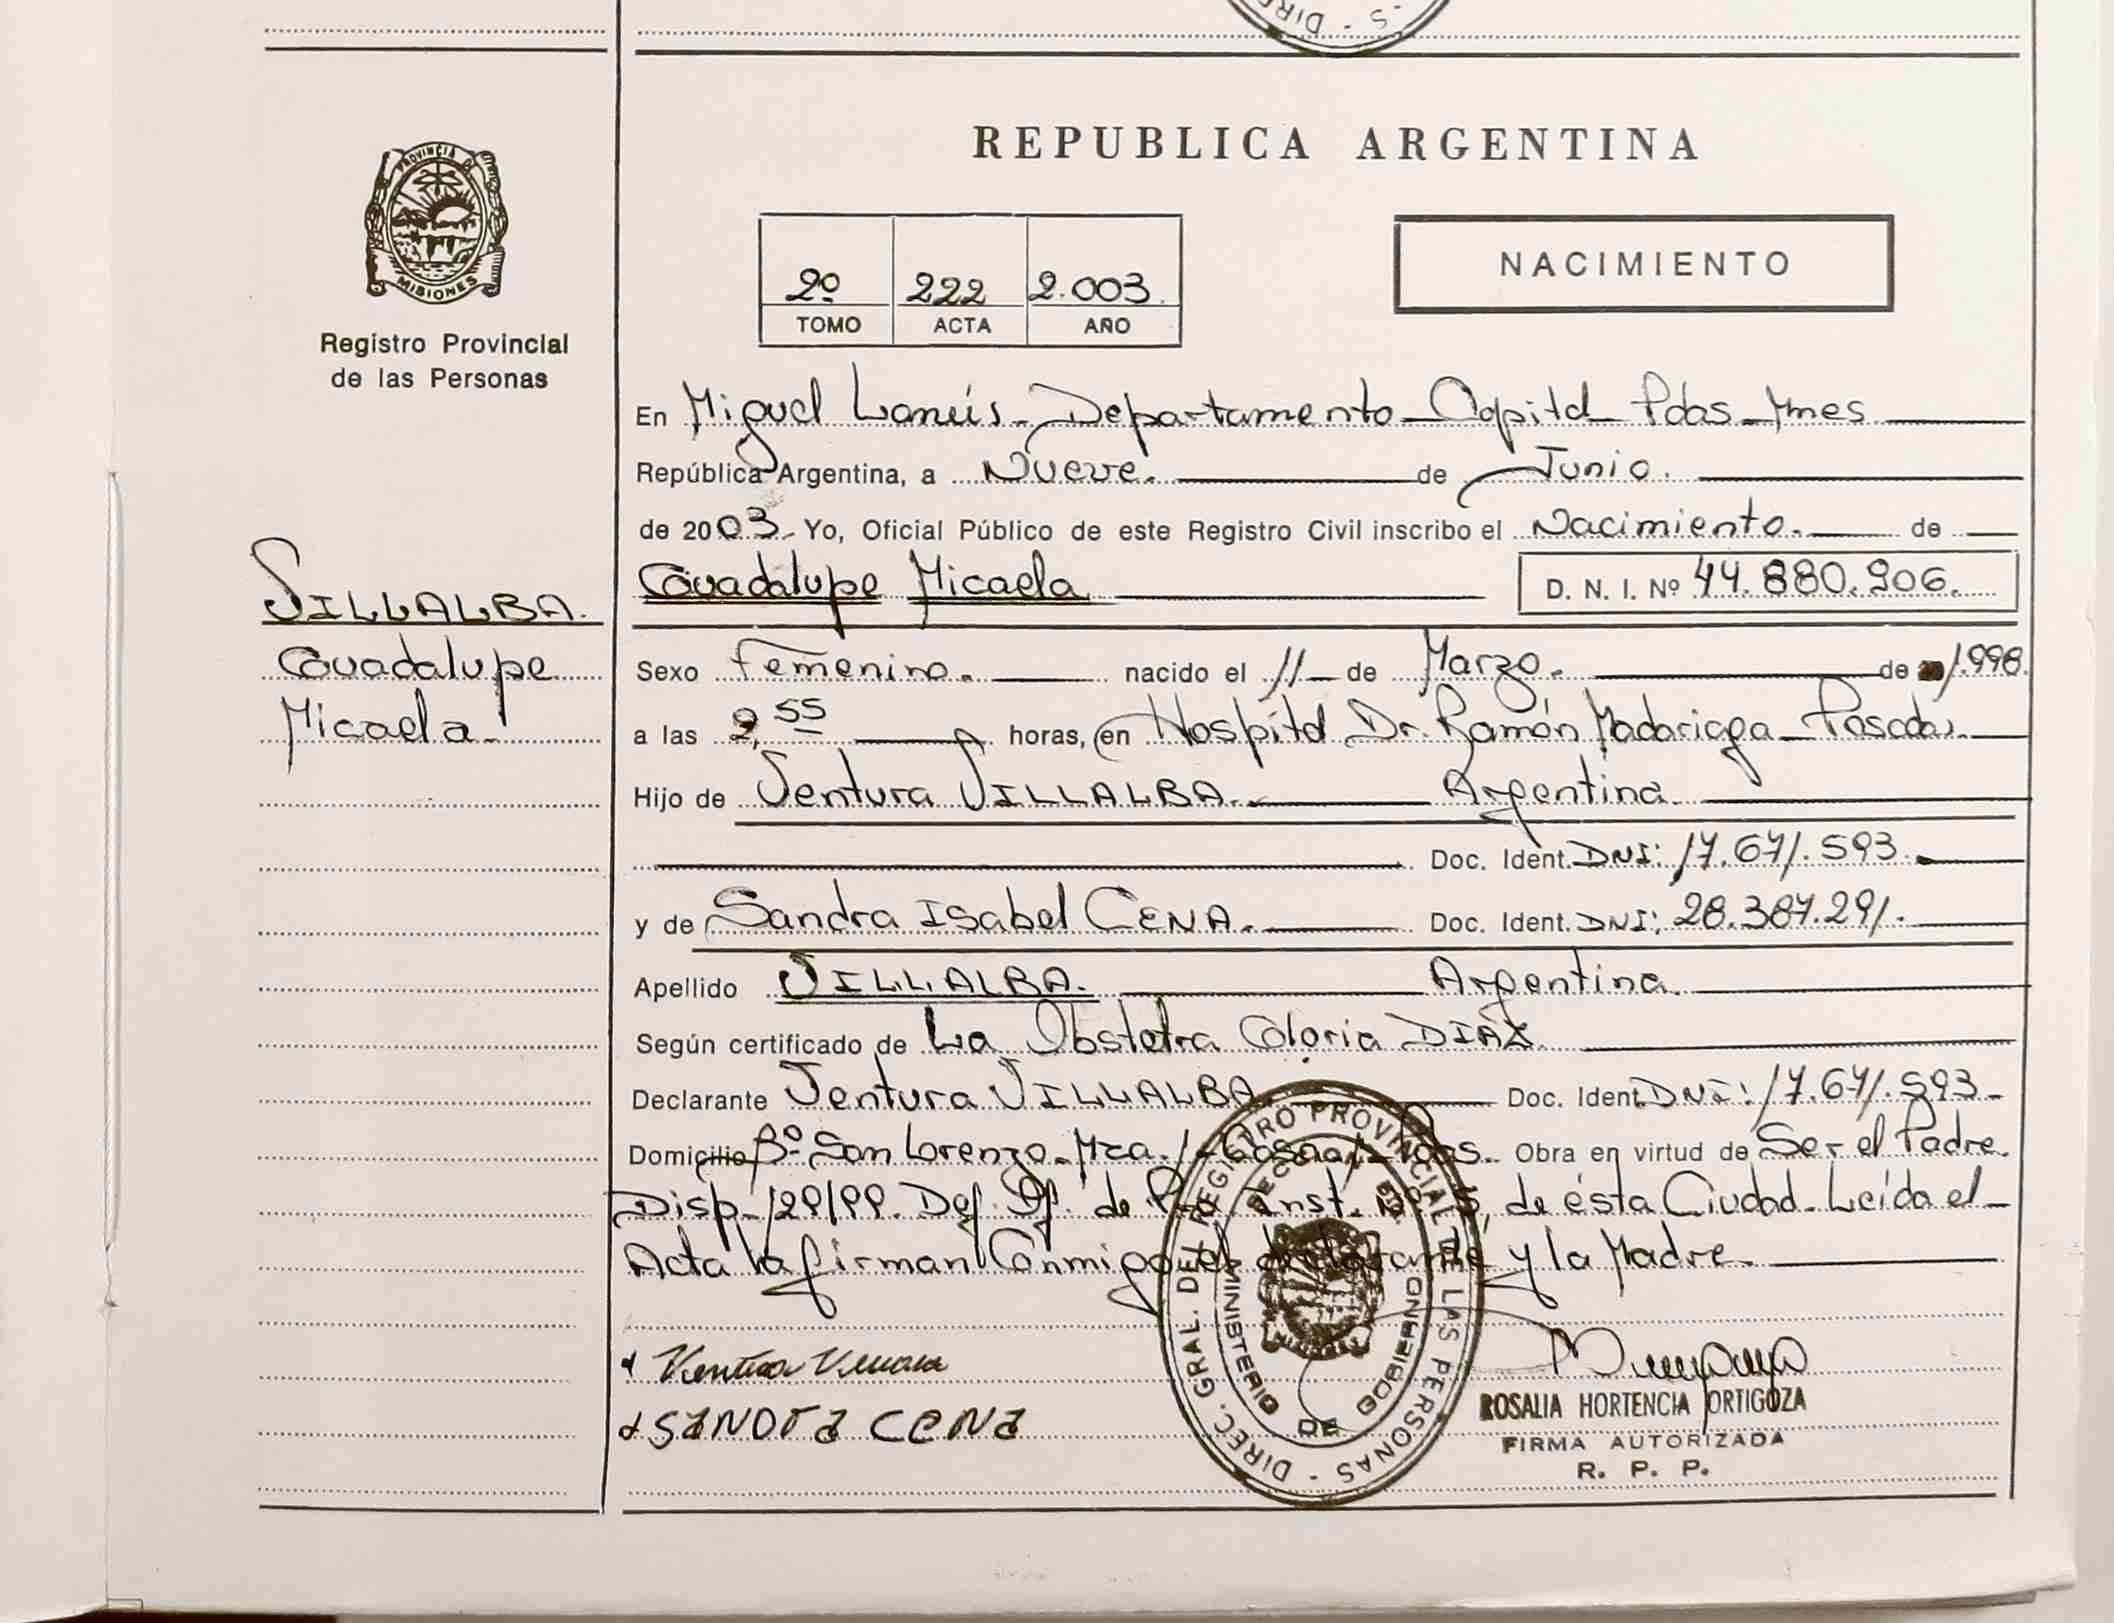 DIREC. - S.
REPUBLICA ARGENTINA
PROVINCIA DE
MISIONES
Registro Provincial
de las Personas
2º 222 2.003.
TOMO ACTA AÑO
NACIMIENTO
En Miguel Lanús. Departamento Capital Pdas Mnes
República Argentina, a Nueve. de Junio.
de 2003. Yo, Oficial Público de este Registro Civil inscribo el Nacimiento. de
Guadalupe Micaela D. N. I. Nº 44.880.906.
VILLALBA.
Guadalupe
Micaela.
Sexo Femenino. nacido el 11 de Marzo. de 1.998.
a las 2,55 horas, en Hospital Dr. Ramón Madariaga Posadas.
Hijo de Ventura VILLALBA. Argentina.
Doc. Ident. DNI: 17.671.593.
y de Sandra Isabel CENA. Doc. Ident. DNI: 28.387.291.
Apellido VILLALBA. Argentina.
Según certificado de La Obstetra Gloria DIAZ.
Declarante Ventura VILLALBA Doc. Ident. DNI: 17.671.593.
Domicilio Bº San Lorenzo. Mza. 1 Casa Pdas. Obra en virtud de Ser el Padre.
Disp. 129/99. Def. Of. de Inst. Nº 5, de ésta Ciudad. Leída el
Acta la firman Conmigo el declarante y la Madre.
Ventura
SANDRA CENA
DIREC. GRAL. DEL REGISTRO PROVINCIAL DE LAS PERSONAS -
MINISTERIO DE GOBIERNO
ROSALIA HORTENCIA ORTIGOZA
FIRMA AUTORIZADA
R. P. P.